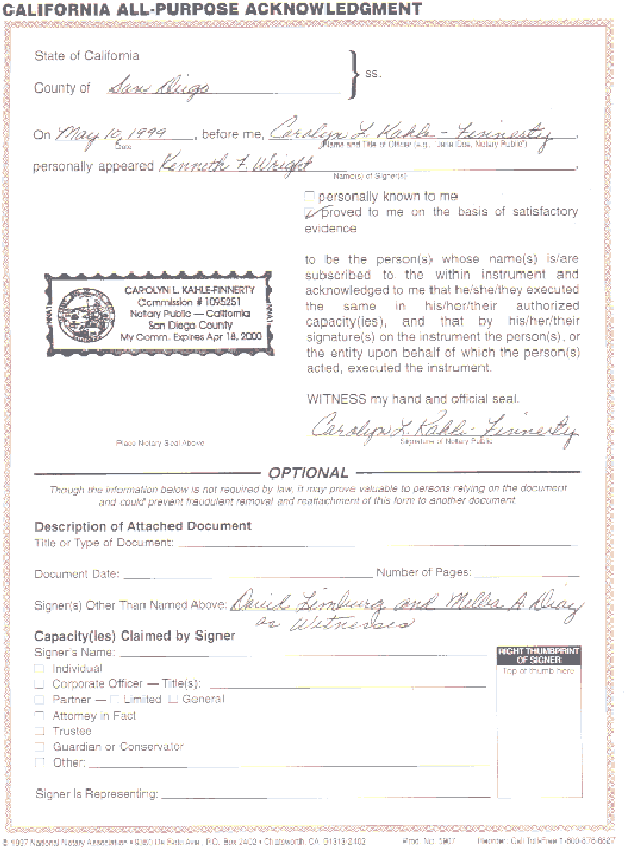 CALIFORNIA ALL-PURPOSE ACKNOWLEDGMENT
State of California
County of San Diego
ss.
On May 10, 1999, before me, Carolyn L. Kahle-Finnerty,
Date
Name and Title of Officer (e.g., "Jane Doe, Notary Public")
personally appeared Kenneth F. Wright,
Name(s) of Signer(s)
personally known to me
proved to me on the basis of satisfactory
evidence
to be the person(s) whose name(s) is/are
subscribed to the within instrument and
acknowledged to me that he/she/they executed
the same in his/her/their authorized
capacity(ies), and that by his/her/their
signature(s) on the instrument the person(s), or
the entity upon behalf of which the person(s)
acted, executed the instrument.
CAROLYN L. KAHLE-FINNERTY
Commission # 1095251
Notary Public — California
San Diego County
My Comm. Expires Apr 18, 2000
WITNESS my hand and official seal.
Carolyn L. Kahle-Finnerty
Place Notary Seal Above
Signature of Notary Public
OPTIONAL
Though the information below is not required by law, it may prove valuable to persons relying on the document
and could prevent fraudulent removal and reattachment of this form to another document.
Description of Attached Document
Title or Type of Document:
Document Date: Number of Pages:
Signer(s) Other Than Named Above: David Limburg and A. Diaz
as Witnesses
Capacity(ies) Claimed by Signer
Signer's Name:
Individual
Corporate Officer — Title(s):
Partner — Limited General
Attorney in Fact
Trustee
Guardian or Conservator
Other:
Signer Is Representing:
RIGHT THUMBPRINT
OF SIGNER
Top of thumb here
© 1997 National Notary Association • 9350 De Soto Ave., P.O. Box 2402 • Chatsworth, CA 91313-2402 Prod. No. 5907 Reorder: Call Toll-Free 1-800-876-6827